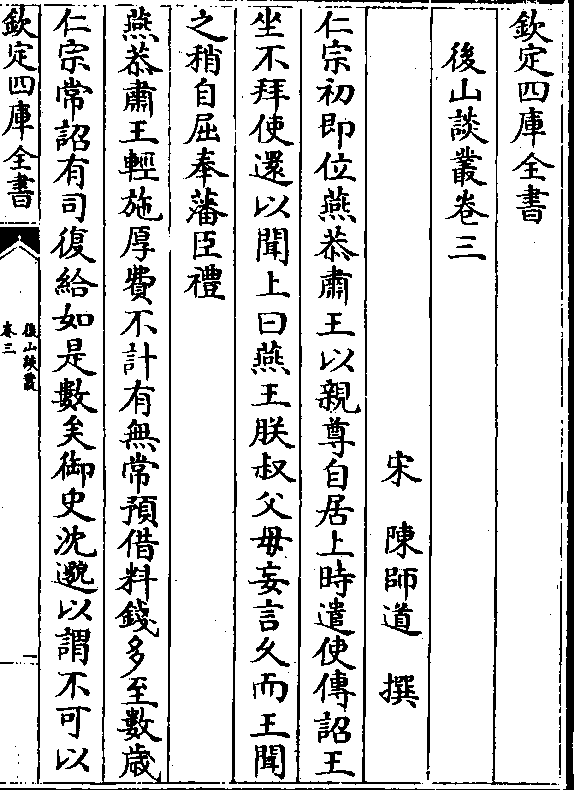 欽定四庫全書
後山談叢卷三
宋 陳師道 撰
仁宗初即位燕恭肅王以親尊自居上時遣使傳詔王
坐不拜使還以聞上曰燕王朕叔父毋妄言久而王聞
之稍自屈奉藩臣禮
燕恭肅王輕施厚費不計有無常預借料錢多至數歲
仁宗常詔有司復給如是數矣御史沈邈以謂不可以
欽定四庫全書
後山談叢
卷三
一